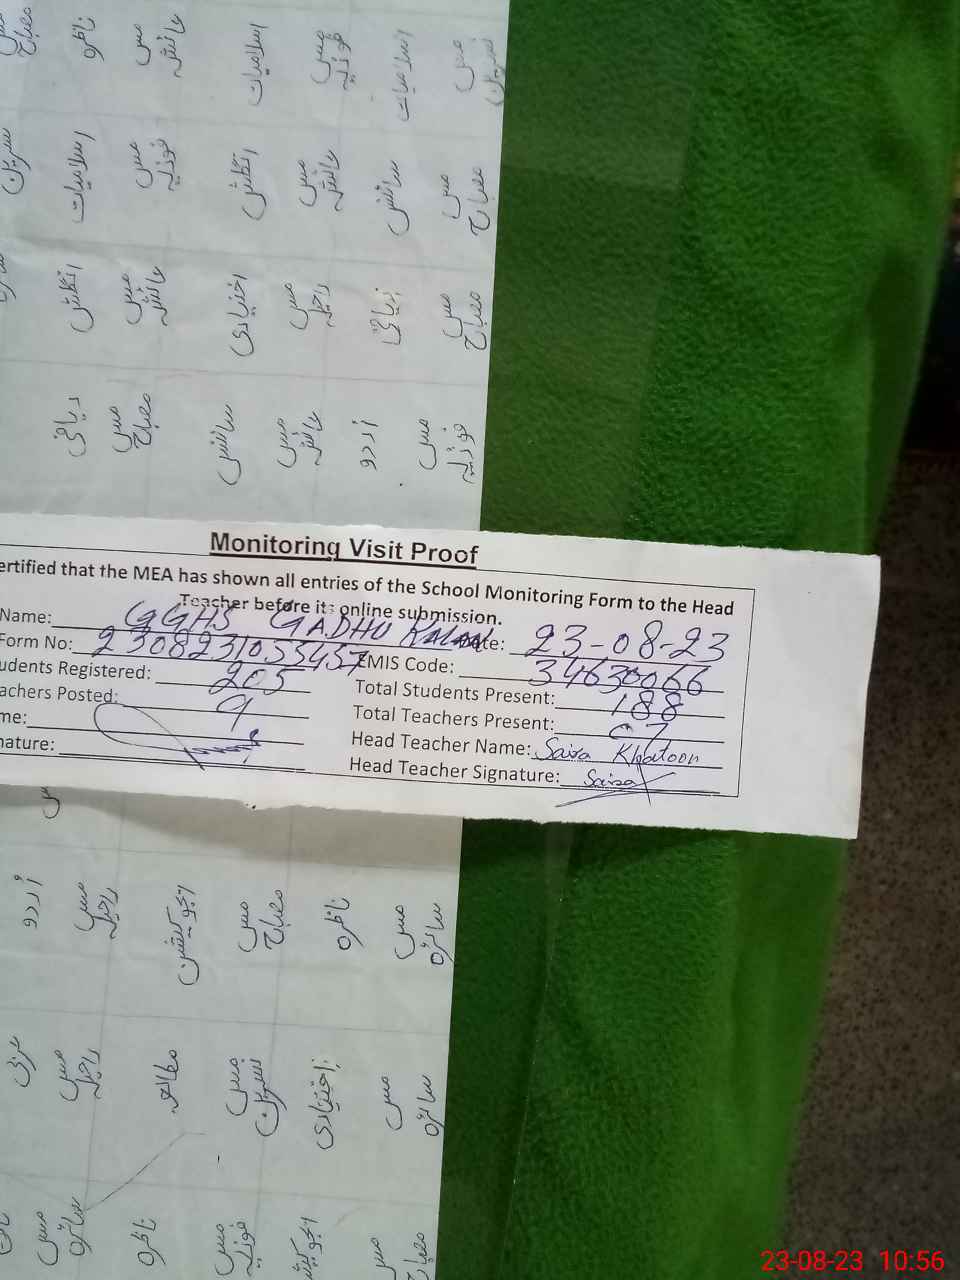 Monitoring Visit Proof
ertified that the MEA has shown all entries of the School Monitoring Form to the Head
Teacher before its online submission.
Name: GGHS GADHU KALAN
ate: 23-08-23
Form No: 2308231055457
EMIS Code: 34630066
udents Registered: 205
Total Students Present: 188
achers Posted: 9
Total Teachers Present: 07
me:
Head Teacher Name: Saira Khatoon
nature:
Head Teacher Signature: Saira
مس مصباح
ناظرہ
مس عائشہ
اسلامیات
مس فوزیہ
اسلامیات
مس نسرین
نسرین
اسلامیات
مس فوزیہ
انگلش
مس عائشہ
سائنس
مس مصباح
انگلش
مس عائشہ
اختیاری
مس راحیلہ
ریاضی
مس مصباح
ریاضی
مس مصباح
سائنس
مس عائشہ
اردو
مس فوزیہ
اردو
مس راحیلہ
ایجوکیشن
مس مصباح
ناظرہ
مس سائرہ
عربی
مس راحیلہ
مطالعہ
مس نسرین
اختیاری
مس سائرہ
مس سائرہ
ناظرہ
مس فوزیہ
ایجوکیشن
مس مصباح
23-08-23 10:56